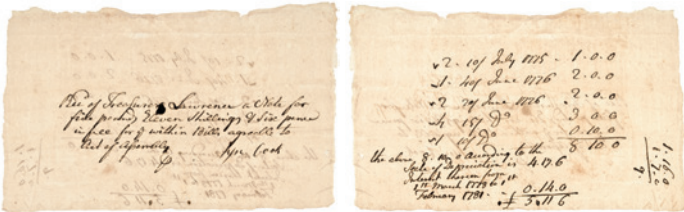 Rec'd of Treasurer Lawrence a Note for
five pounds Eleven Shillings & Six pence
in full for ye within Bills agreable to
Act of Assembly
Cook
2. 10/ July 1775 - 1.0.0
1. 40/ June 1776 2.0.0
2 20/ June 1776 2.0.0
4 15/ Do 3 0.0
1 10/ Do 0.10.0
8 10 0
the above 8. 10. 0 According to the
Scale of Depreciation is 4.17.6
Interest thereon from
1st March 1778 to 1st
February 1781 - 0.14.0
£ 5.11 6